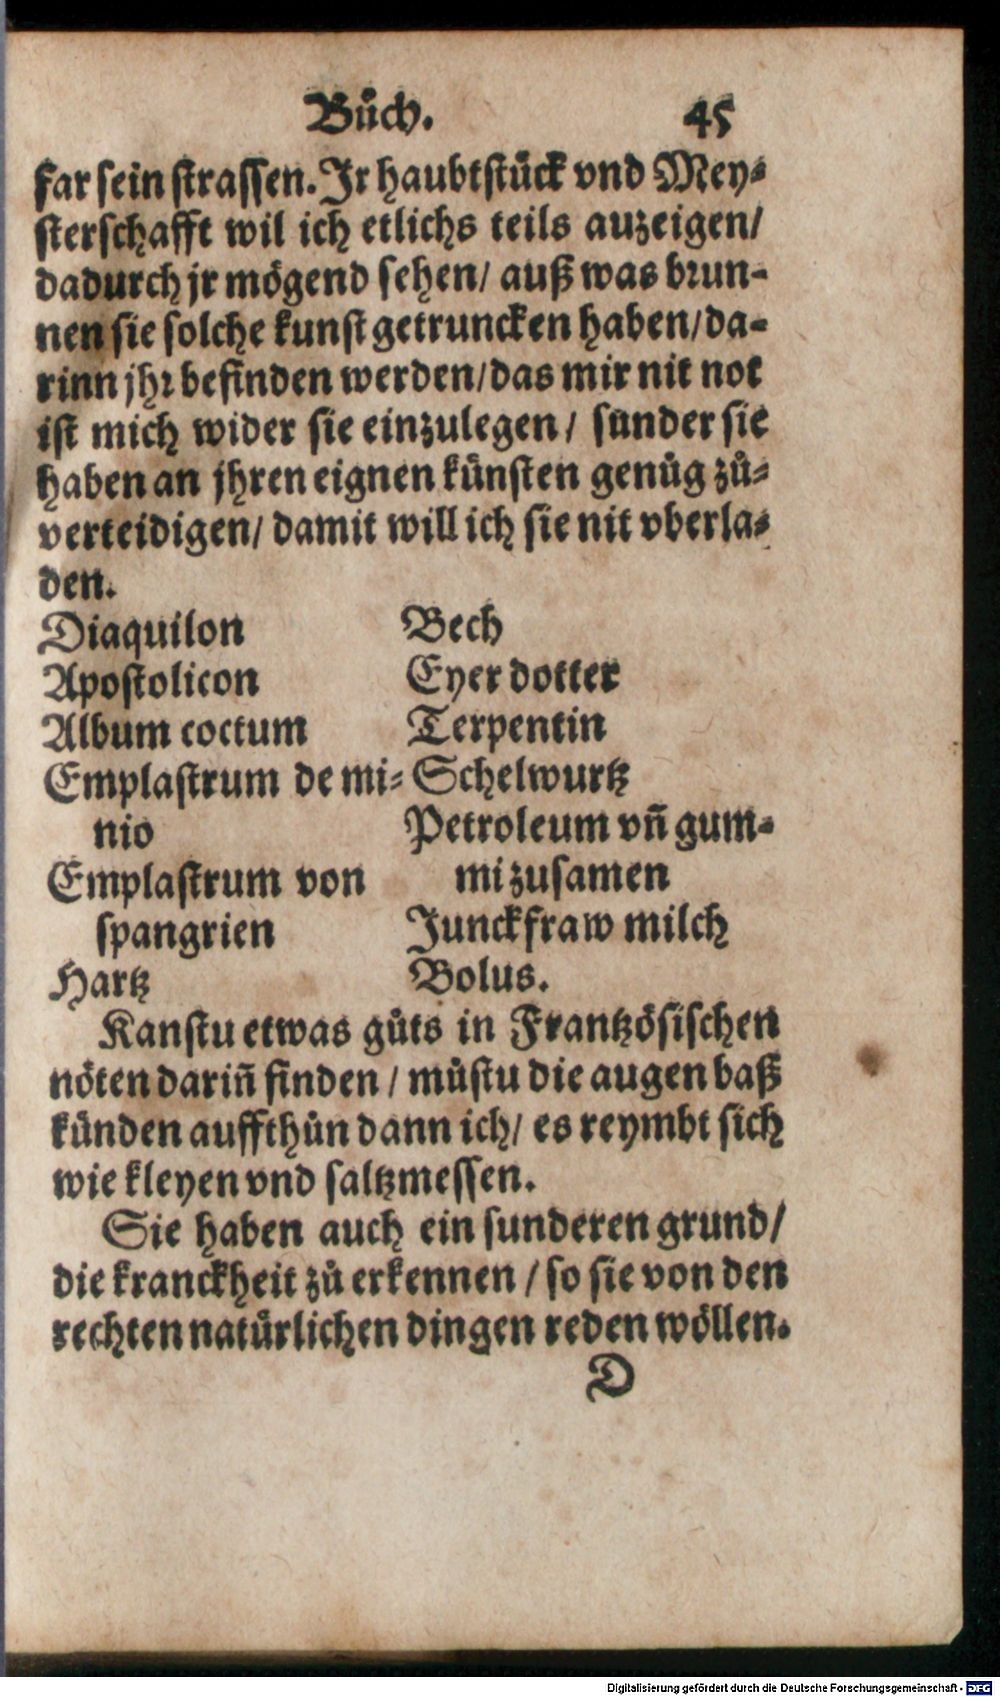 Bůch. 45
far sein strassen. Jr haubtstück vnd Mey-
sterschafft wil ich etlichs teils auzeigen/
dadurch jr mögend sehen/ auß was brun-
nen sie solche kunst getruncken haben/da-
rinn jhr befinden werden/das mir nit not
ist mich wider sie einzulegen/ sunder sie
haben an jhren eignen künsten genůg zů-
verteidigen/ damit will ich sie nit vberla-
den.
Diaquilon
Apostolicon
Album coctum
Emplastrum de mi-
nio
Emplastrum von
spangrien
Hartz
Bech
Eyer dotter
Terpentin
Schelwurtz
Petroleum vñ gum-
mi zusamen
Junckfraw milch
Bolus.
Kanstu etwas gůts in Frantzösischen
nöten dariñ finden/ můstu die augen baß
künden auffthůn dann ich/ es reymbt sich
wie kleyen vnd saltzmessen.
Sie haben auch ein sunderen grund/
die kranckheit zů erkennen/ so sie von den
rechten natürlichen dingen reden wöllen.
D
Digitalisierung gefördert durch die Deutsche Forschungsgemeinschaft - DFG